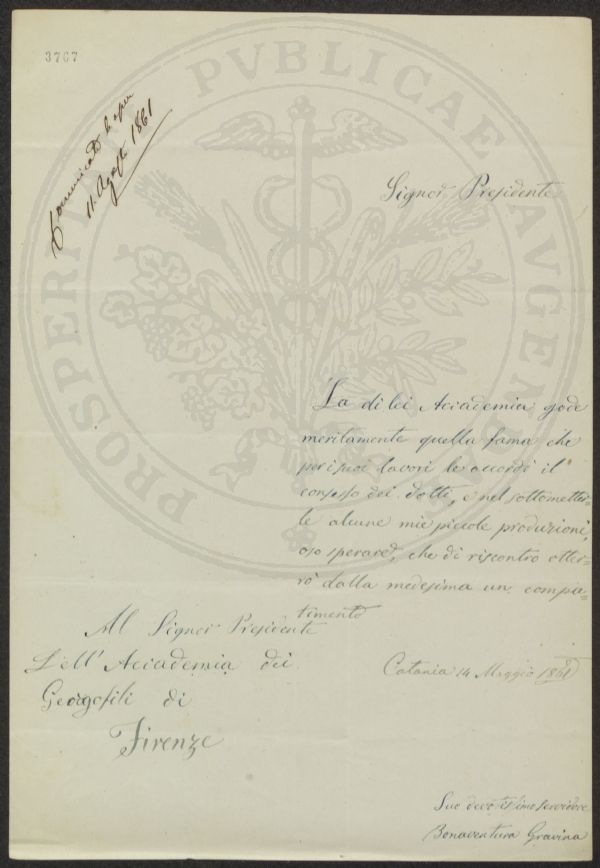 3767
Comunicato
11. Agosto 1861
PROSPERITATI PVBLICAE AVGENDAE
Signor Presidente
La di lei Acciademia gode
meritamente quella fama che
per i suoi lavori le accordò il
consesso dei dotti, e nel sottometter-
le alcune mie piccole produzioni,
oso sperare, che di riscontro otter-
rò dalla medesima un compa-
timento
Al Signor Presidente
Dell'Acciademia dei
Georgofili di
Firenze
Catania 14 Maggio 1861
Suo devotissimo servidore
Bonaventura Gravina